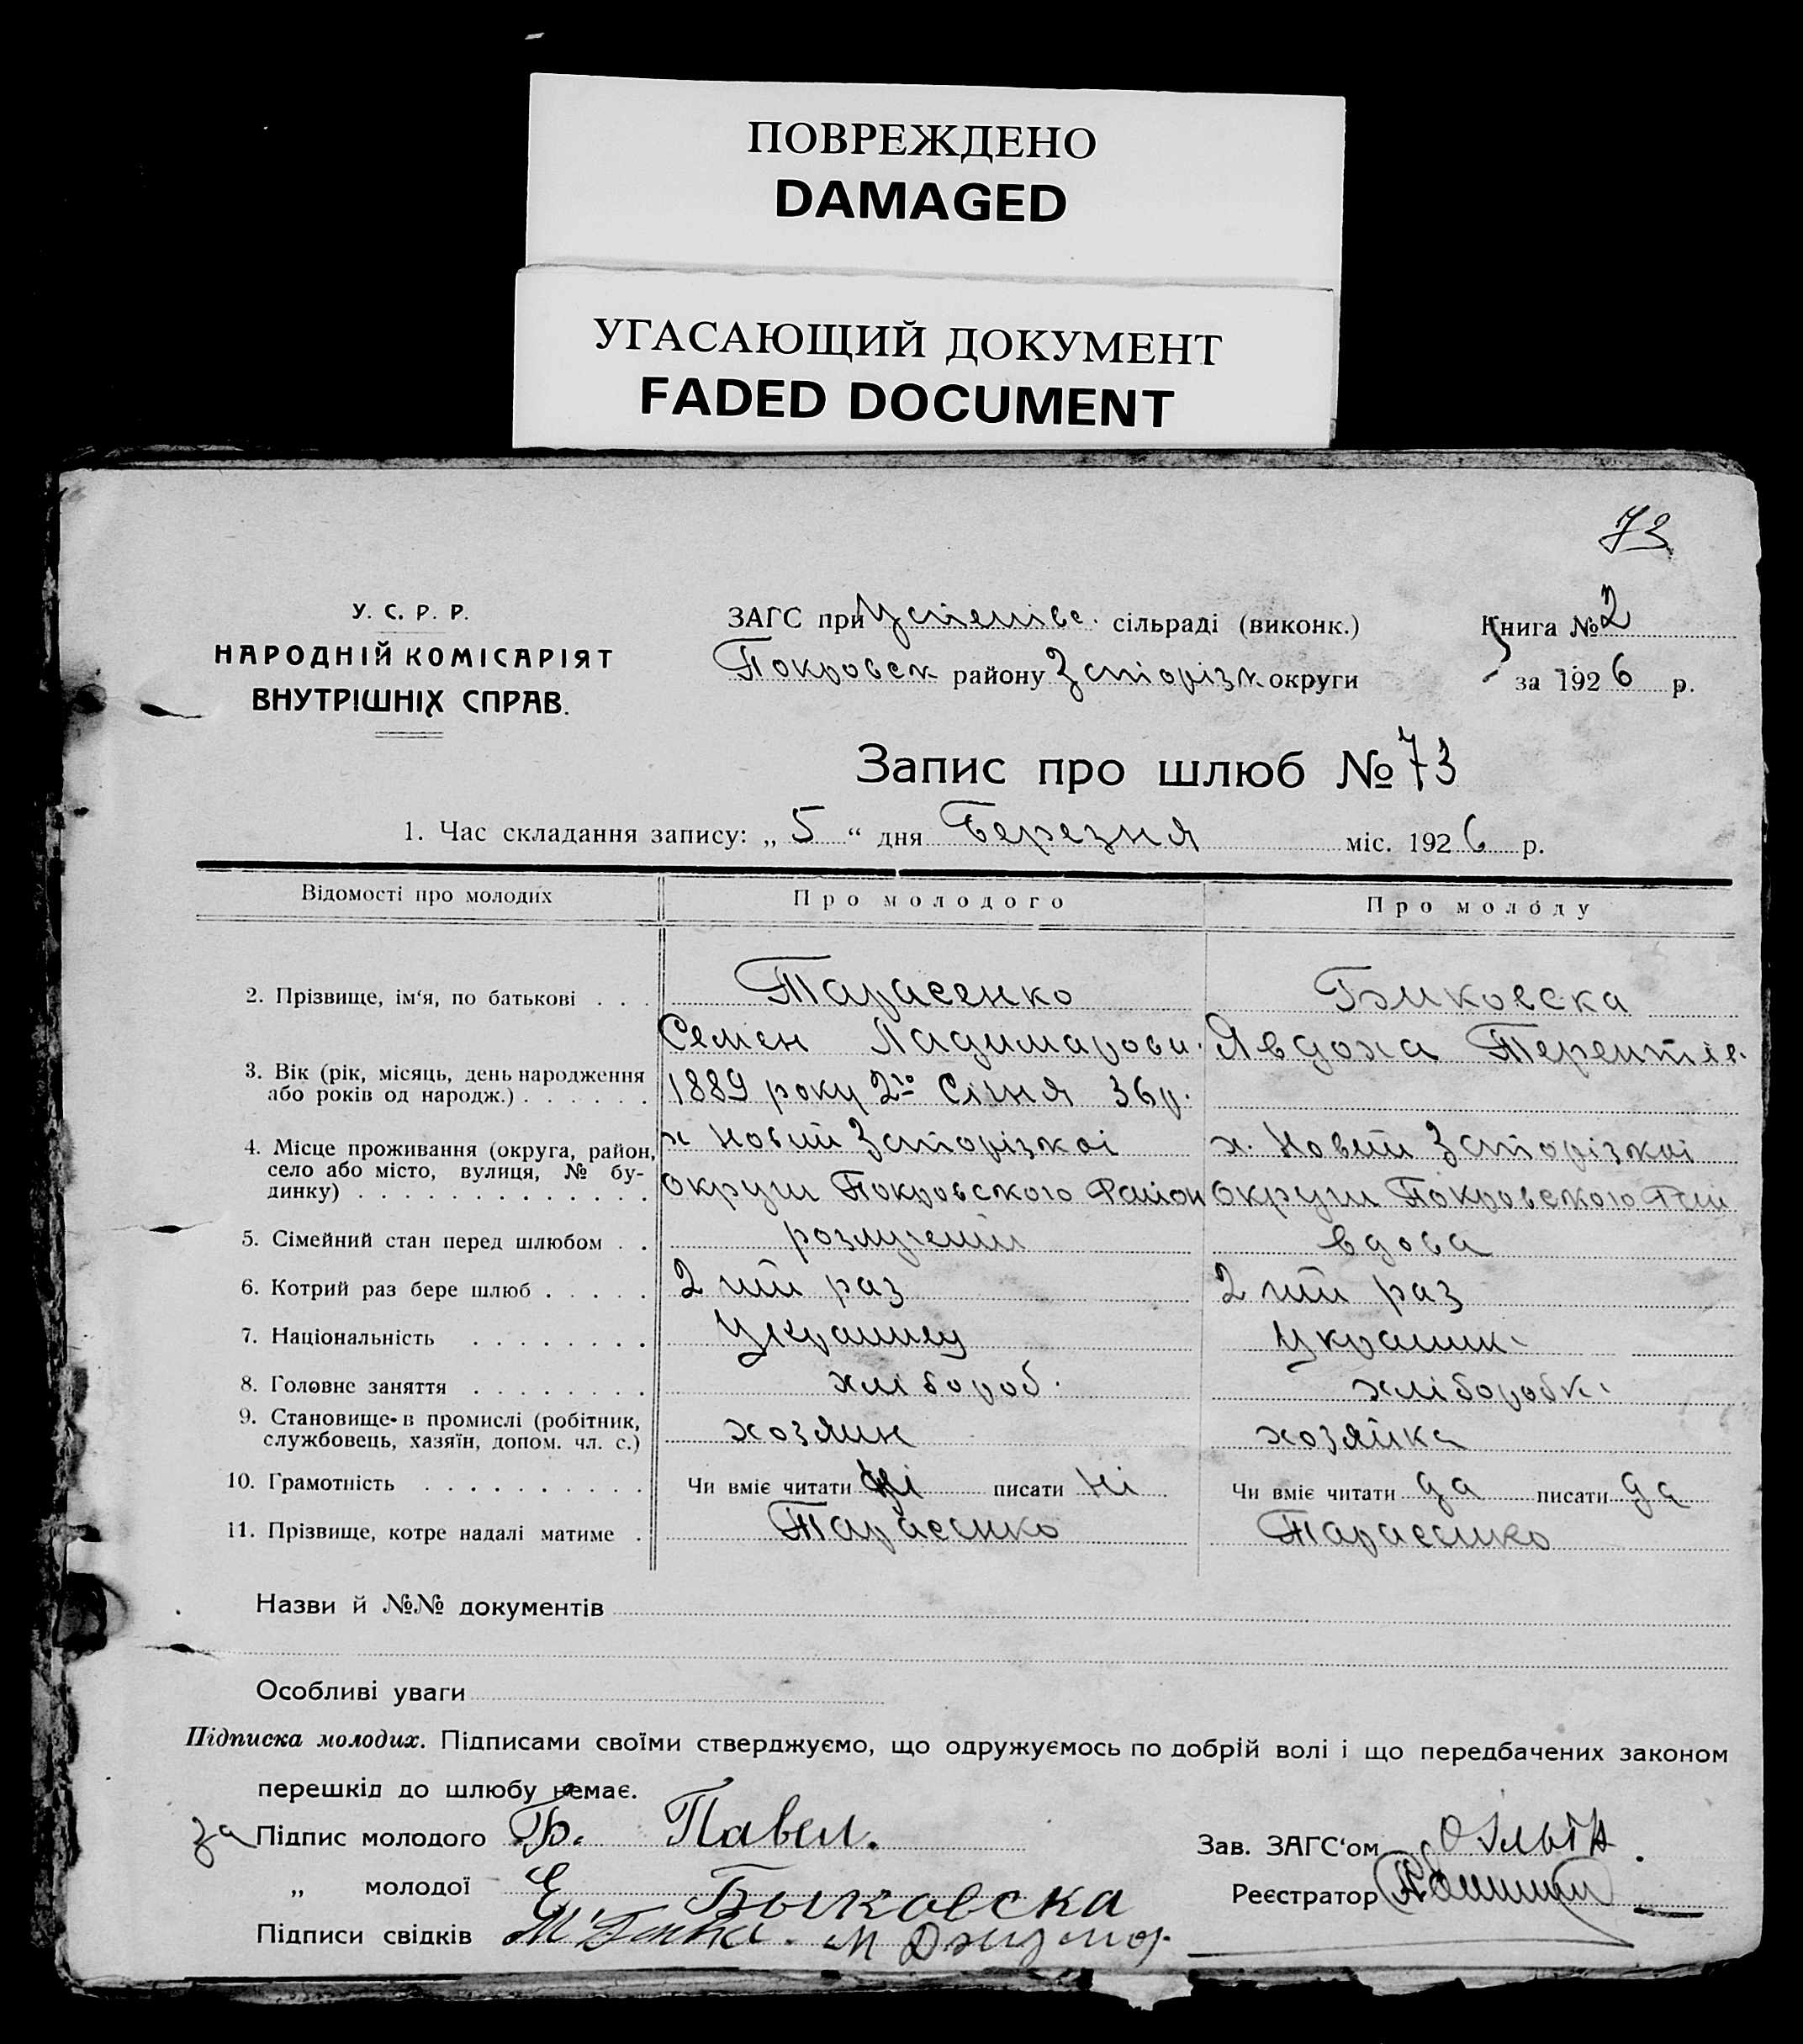 ПОВРЕЖДЕНО
DAMAGED
УГАСАЮЩИЙ ДОКУМЕНТ
FADED DOCUMENT
73
У. С. Р. Р.
НАРОДНІЙ КОМІСАРІЯТ
ВНУТРІШНІХ СПРАВ.
ЗАГС при Успенівс. сільраді (виконк.)
Покровськ району Запорізк округи
Книга № 2
за 1926 р.
Запис про шлюб № 73
1. Час складання запису: „ 5 “ дня Березня міс. 1926 р.
Відомості про молодих Про молодого Про молоду
2. Прізвище, ім‘я, по батькові . . . Тарасенко Биковска
Семен Ладимарови. Явдоха Терентіе.
3. Вік (рік, місяць, день народження
або років од народж.) . . . . . . 1889 року 2го Січня 36 р.
4. Місце проживання (округа, район, х Новий Запорізкоі х. Новий Запорізкоі
село або місто, вулиця, № бу-
динку) . . . . . . . . . . . . . . Округи Покровского Район Округи Покровского Рай
5. Сімейний стан перед шлюбом . . розлучений вдова
6. Котрий раз бере шлюб . . . . . 2 гий раз 2 гий раз
7. Національність . . . . . . . . Українец Україник
8. Головне заняття . . . . . . . . хлібороб. хліборобка
9. Становище в промислі (робітник,
службовець, хазяїн, допом. чл. с.) хозяин хозяйка
10. Грамотність . . . . . . . . . . Чи вміє читати ні писати ні Чи вміє читати да писати да
11. Прізвище, котре надалі матиме . Тарасенко Тарасенко
Назви й №№ документів
Особливі уваги
Підписка молодих. Підписами своїми стверджуємо, що одружуємось по добрій волі і що передбачених законом
перешкід до шлюбу немає.
за Підпис молодого Б. Павел.
Зав. ЗАГС‘ом
„ молодої Е. Быковска
Реєстратор
Підписи свідків М